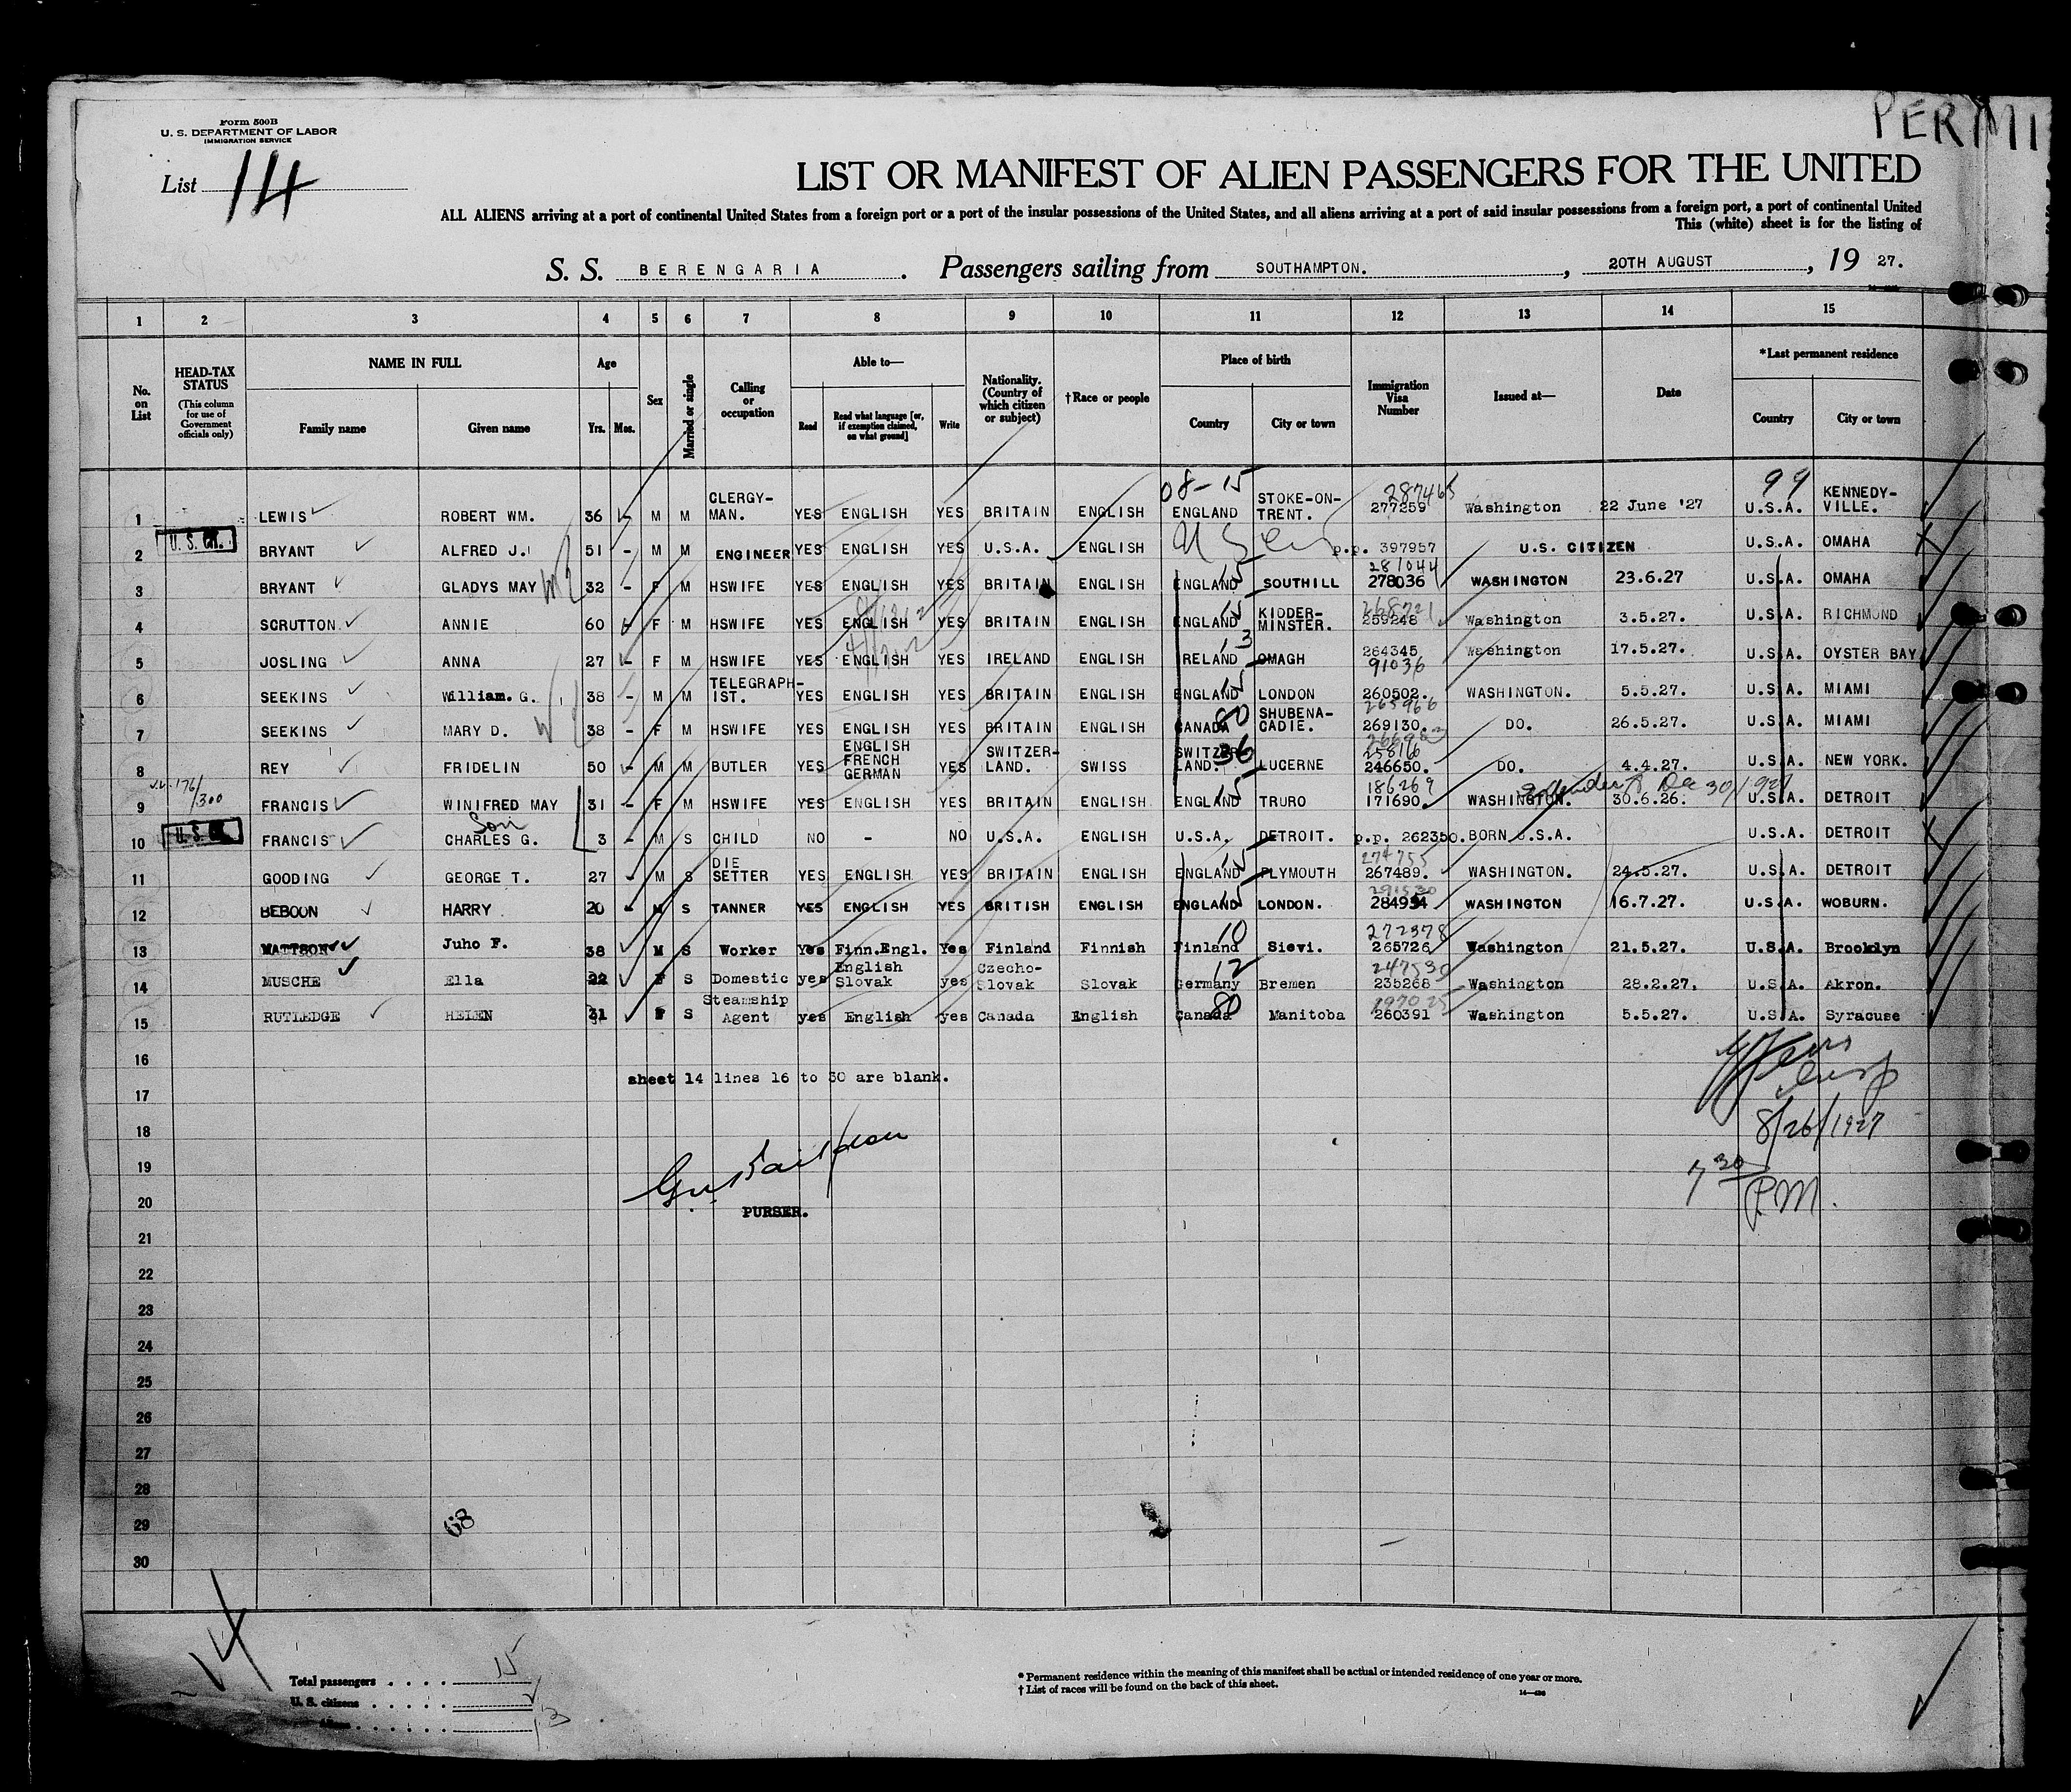 PERMI
Form 500B
U. S. DEPARTMENT OF LABOR
IMMIGRATION SERVICE
List 14
LIST OR MANIFEST OF ALIEN PASSENGERS FOR THE UNITED
ALL ALIENS arriving at a port of continental United States from a foreign port or a port of the insular possessions of the United States, and all aliens arriving at a port of said insular possessions from a foreign port, a port of continental United
This (white) sheet is for the listing of
S. S. BERENGARIA. Passengers sailing from SOUTHAMPTON., 20TH AUGUST, 19 27.
1 2 3 4 5 6 7 8 9 10 11 12 13 14 15
No. on List
HEAD-TAX STATUS (This column for use of Government officials only)
NAME IN FULL Family name Given name
Age Yrs. Mos.
Sex
Married or single
Calling or occupation
Able to— Read Read what language [or, if exemption claimed, on what ground] Write
Nationality. (Country of which citizen or subject)
†Race or people
Place of birth Country City or town
Immigration Visa Number
Issued at—
Date
*Last permanent residence Country City or town
1 LEWIS ROBERT WM. 36 M M CLERGY-MAN. YES ENGLISH YES BRITAIN ENGLISH 08-15 ENGLAND STOKE-ON-TRENT. 287465 277259 Washington 22 June '27 99 U.S.A. KENNEDY-VILLE.
2 U.S. BRYANT ALFRED J. 51 - M M ENGINEER YES ENGLISH YES U.S.A. ENGLISH p.p. 397957 U.S. CITIZEN U.S.A. OMAHA
3 BRYANT GLADYS MAY 32 - F M HSWIFE YES ENGLISH YES BRITAIN ENGLISH ENGLAND 15 SOUTHILL 281044 278036 WASHINGTON 23.6.27 U.S.A. OMAHA
4 SCRUTTON. ANNIE 60 F M HSWIFE YES ENGLISH YES BRITAIN ENGLISH ENGLAND 15 KIDDER-MINSTER. 268721 259248 Washington 3.5.27. U.S.A. RICHMOND
5 JOSLING ANNA 27 - F M HSWIFE YES ENGLISH YES IRELAND ENGLISH IRELAND 13 OMAGH 264345 91036 Washington 17.5.27. U.S.A. OYSTER BAY
6 SEEKINS William. G. 38 - M M TELEGRAPH-IST. YES ENGLISH YES BRITAIN ENGLISH ENGLAND 15 LONDON 260502. 265966 WASHINGTON. 5.5.27. U.S.A. MIAMI
7 SEEKINS MARY D. 38 - F M HSWIFE YES ENGLISH YES BRITAIN ENGLISH CANADA 80 SHUBENA-CADIE. 269130. DO. 26.5.27. U.S.A. MIAMI
8 REY FRIDELIN 50 - M M BUTLER YES ENGLISH FRENCH GERMAN YES SWITZER-LAND. SWISS SWITZER-LAND. 36 LUCERNE 25816 246650. DO. 4.4.27. U.S.A. NEW YORK.
9 176/300 FRANCIS WINIFRED MAY 31 - F M HSWIFE YES ENGLISH YES BRITAIN ENGLISH ENGLAND 15 TRURO 186269 171690. WASHINGTON. 30.6.26. Dec 30/1927 U.S.A. DETROIT
10 U.S. FRANCIS Son CHARLES G. 3 - M S CHILD NO - NO U.S.A. ENGLISH U.S.A. DETROIT. p.p. 262350. BORN U.S.A. U.S.A. DETROIT
11 GOODING GEORGE T. 27 - M S DIE SETTER YES ENGLISH YES BRITAIN ENGLISH ENGLAND 15 PLYMOUTH 274755 267489. WASHINGTON. 24.5.27. U.S.A. DETROIT
12 BEBOON HARRY 20 - M S TANNER YES ENGLISH YES BRITISH ENGLISH ENGLAND 15 LONDON. 291530 284934 WASHINGTON 16.7.27. U.S.A. WOBURN.
13 MATTSON Juho F. 38 M S Worker Yes Finn.Engl. Yes Finland Finnish Finland 10 Sievi. 272378 265726 Washington 21.5.27. U.S.A. Brooklyn
14 MUSCHE Ella 22 F S Domestic yes English Slovak yes Czecho-Slovak Slovak Germany 12 Bremen 247530 235268 Washington 28.2.27. U.S.A. Akron.
15 RUTLEDGE HELEN 31 F S Steamship Agent yes English yes Canada English Canada 80 Manitoba 260391 Washington 5.5.27. U.S.A. Syracuse
16
sheet 14 lines 16 to 30 are blank.
17
18
8/26/1927
19
7 30 P.M.
20
PURSER.
21
22
23
24
25
26
27
28
29
68
30
14
Total passengers 15
U. S. citizens 2
Aliens 13
* Permanent residence within the meaning of this manifest shall be actual or intended residence of one year or more.
† List of races will be found on the back of this sheet.